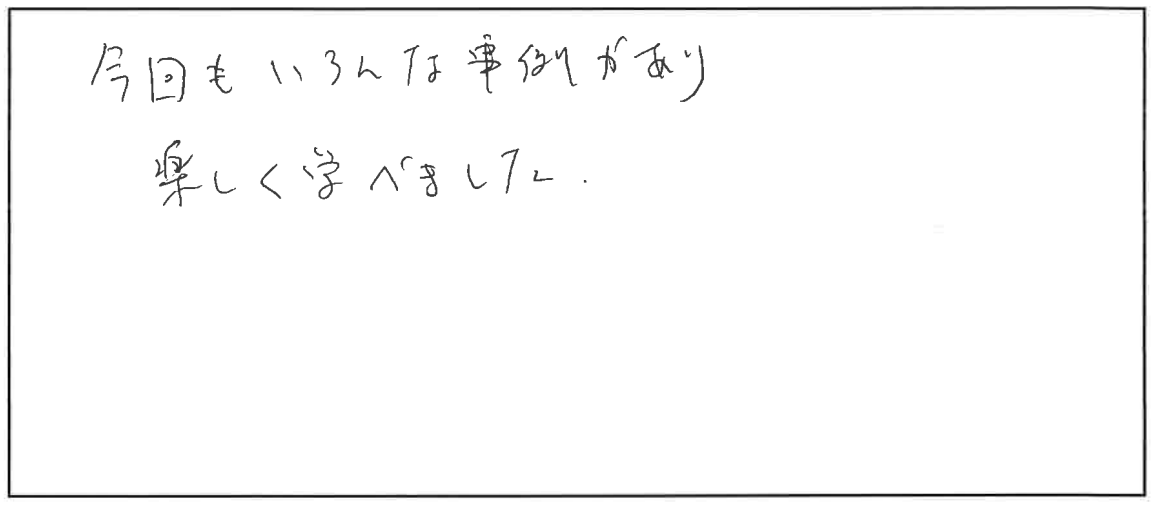 今回もいろんな事例があり
楽しく学べました.